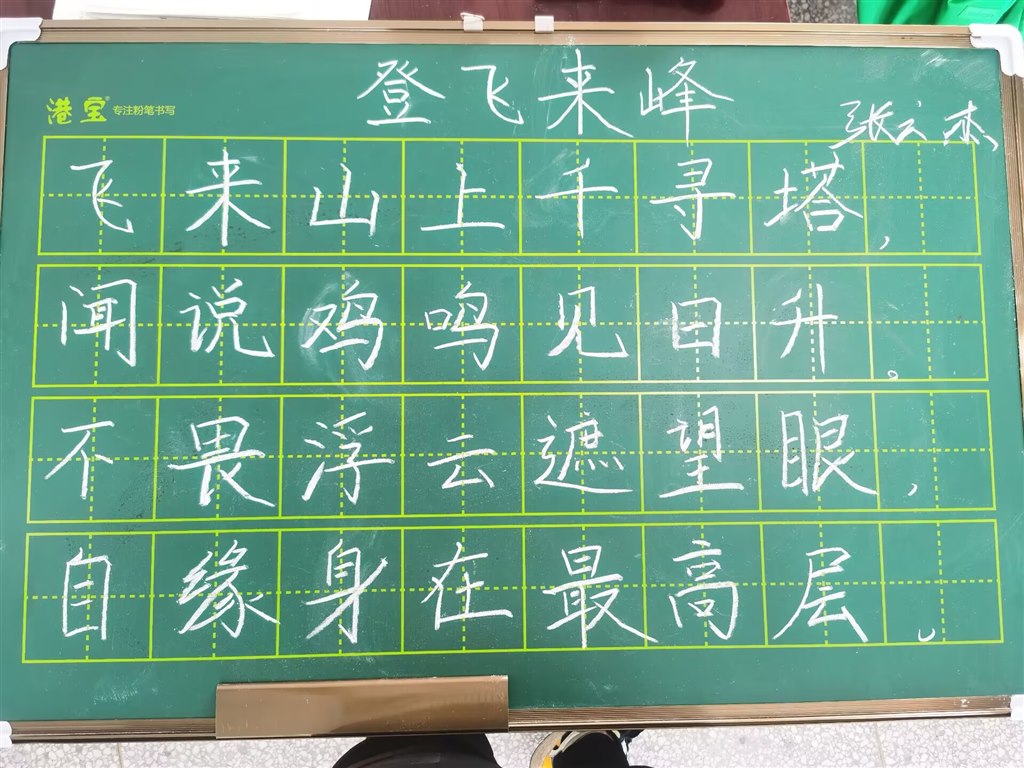 登飞来峰
港宝® 专注粉笔书写
张云杰
飞来山上千寻塔，
闻说鸡鸣见日升。
不畏浮云遮望眼，
自缘身在最高层。